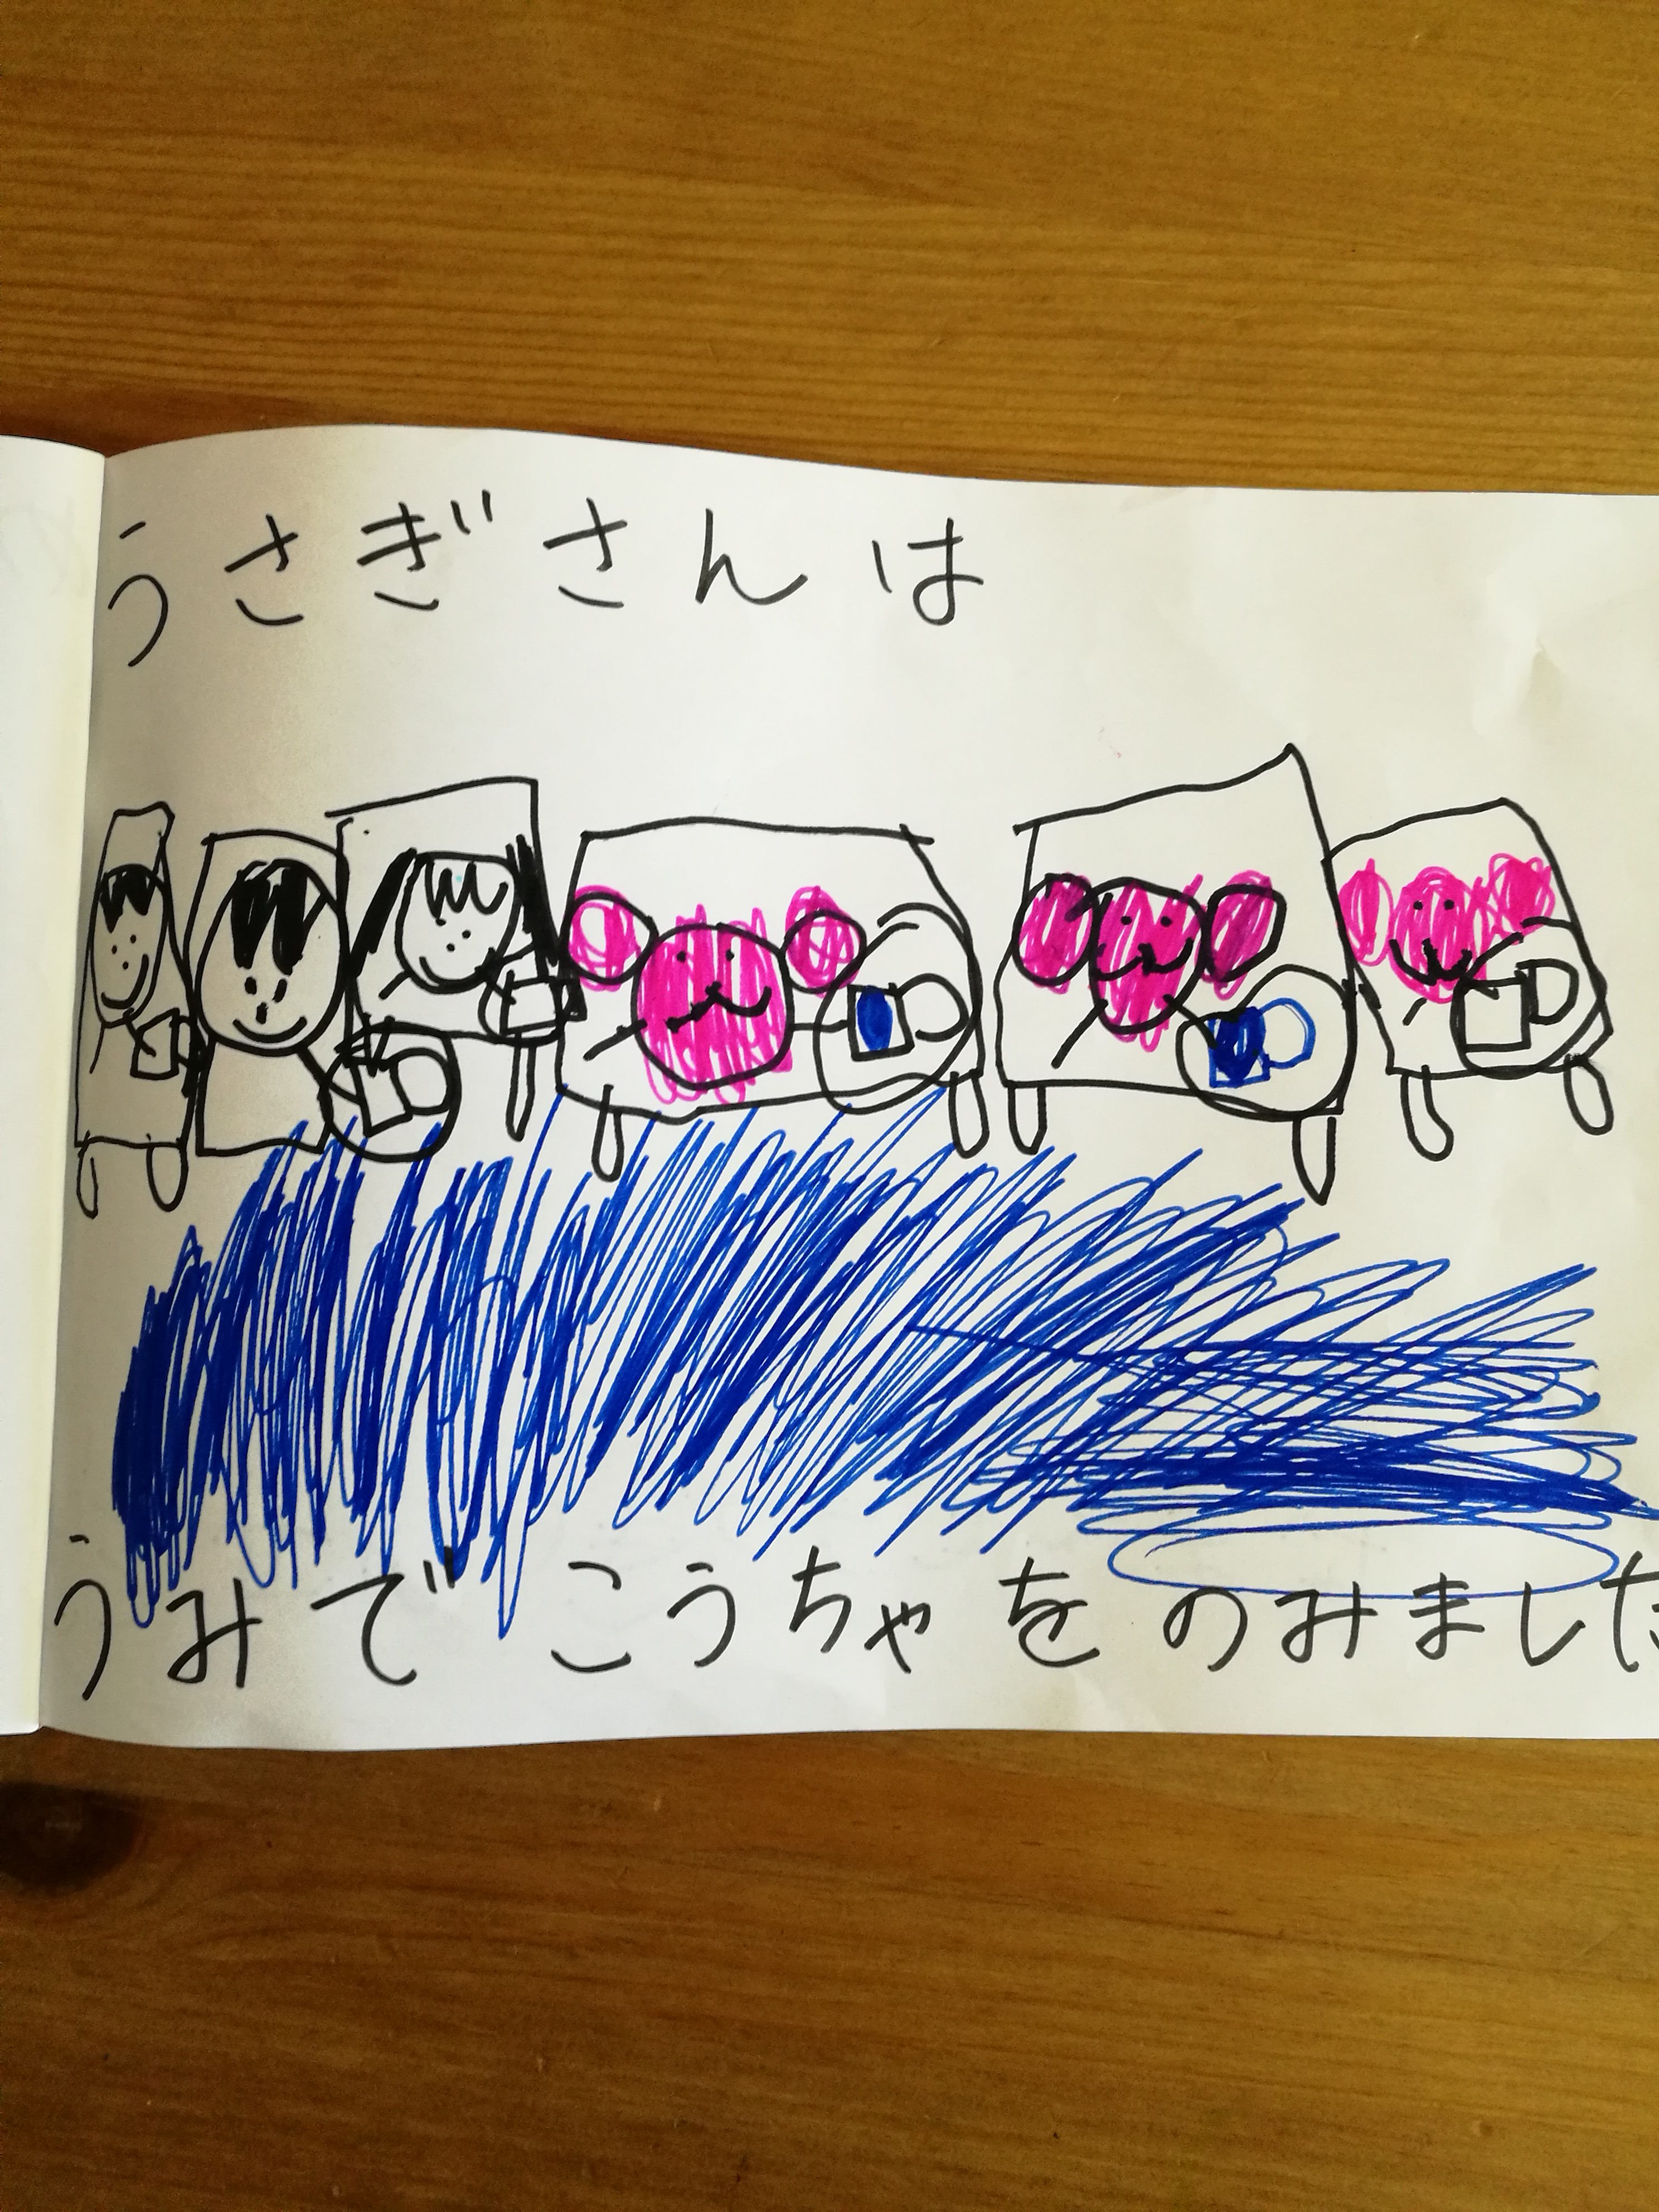 うさぎさんは
うみで こうちゃ を のみました